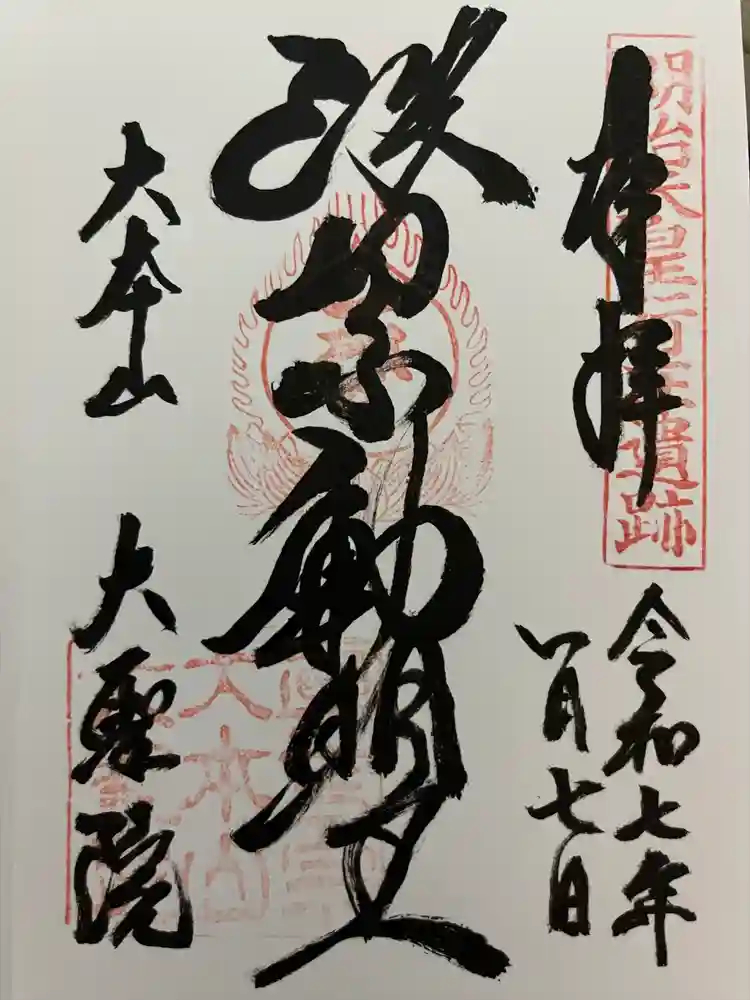 奉拝
明治天皇
遺跡
令和七年
八月七日
波切不動明王
大本山
大聖院
大本山